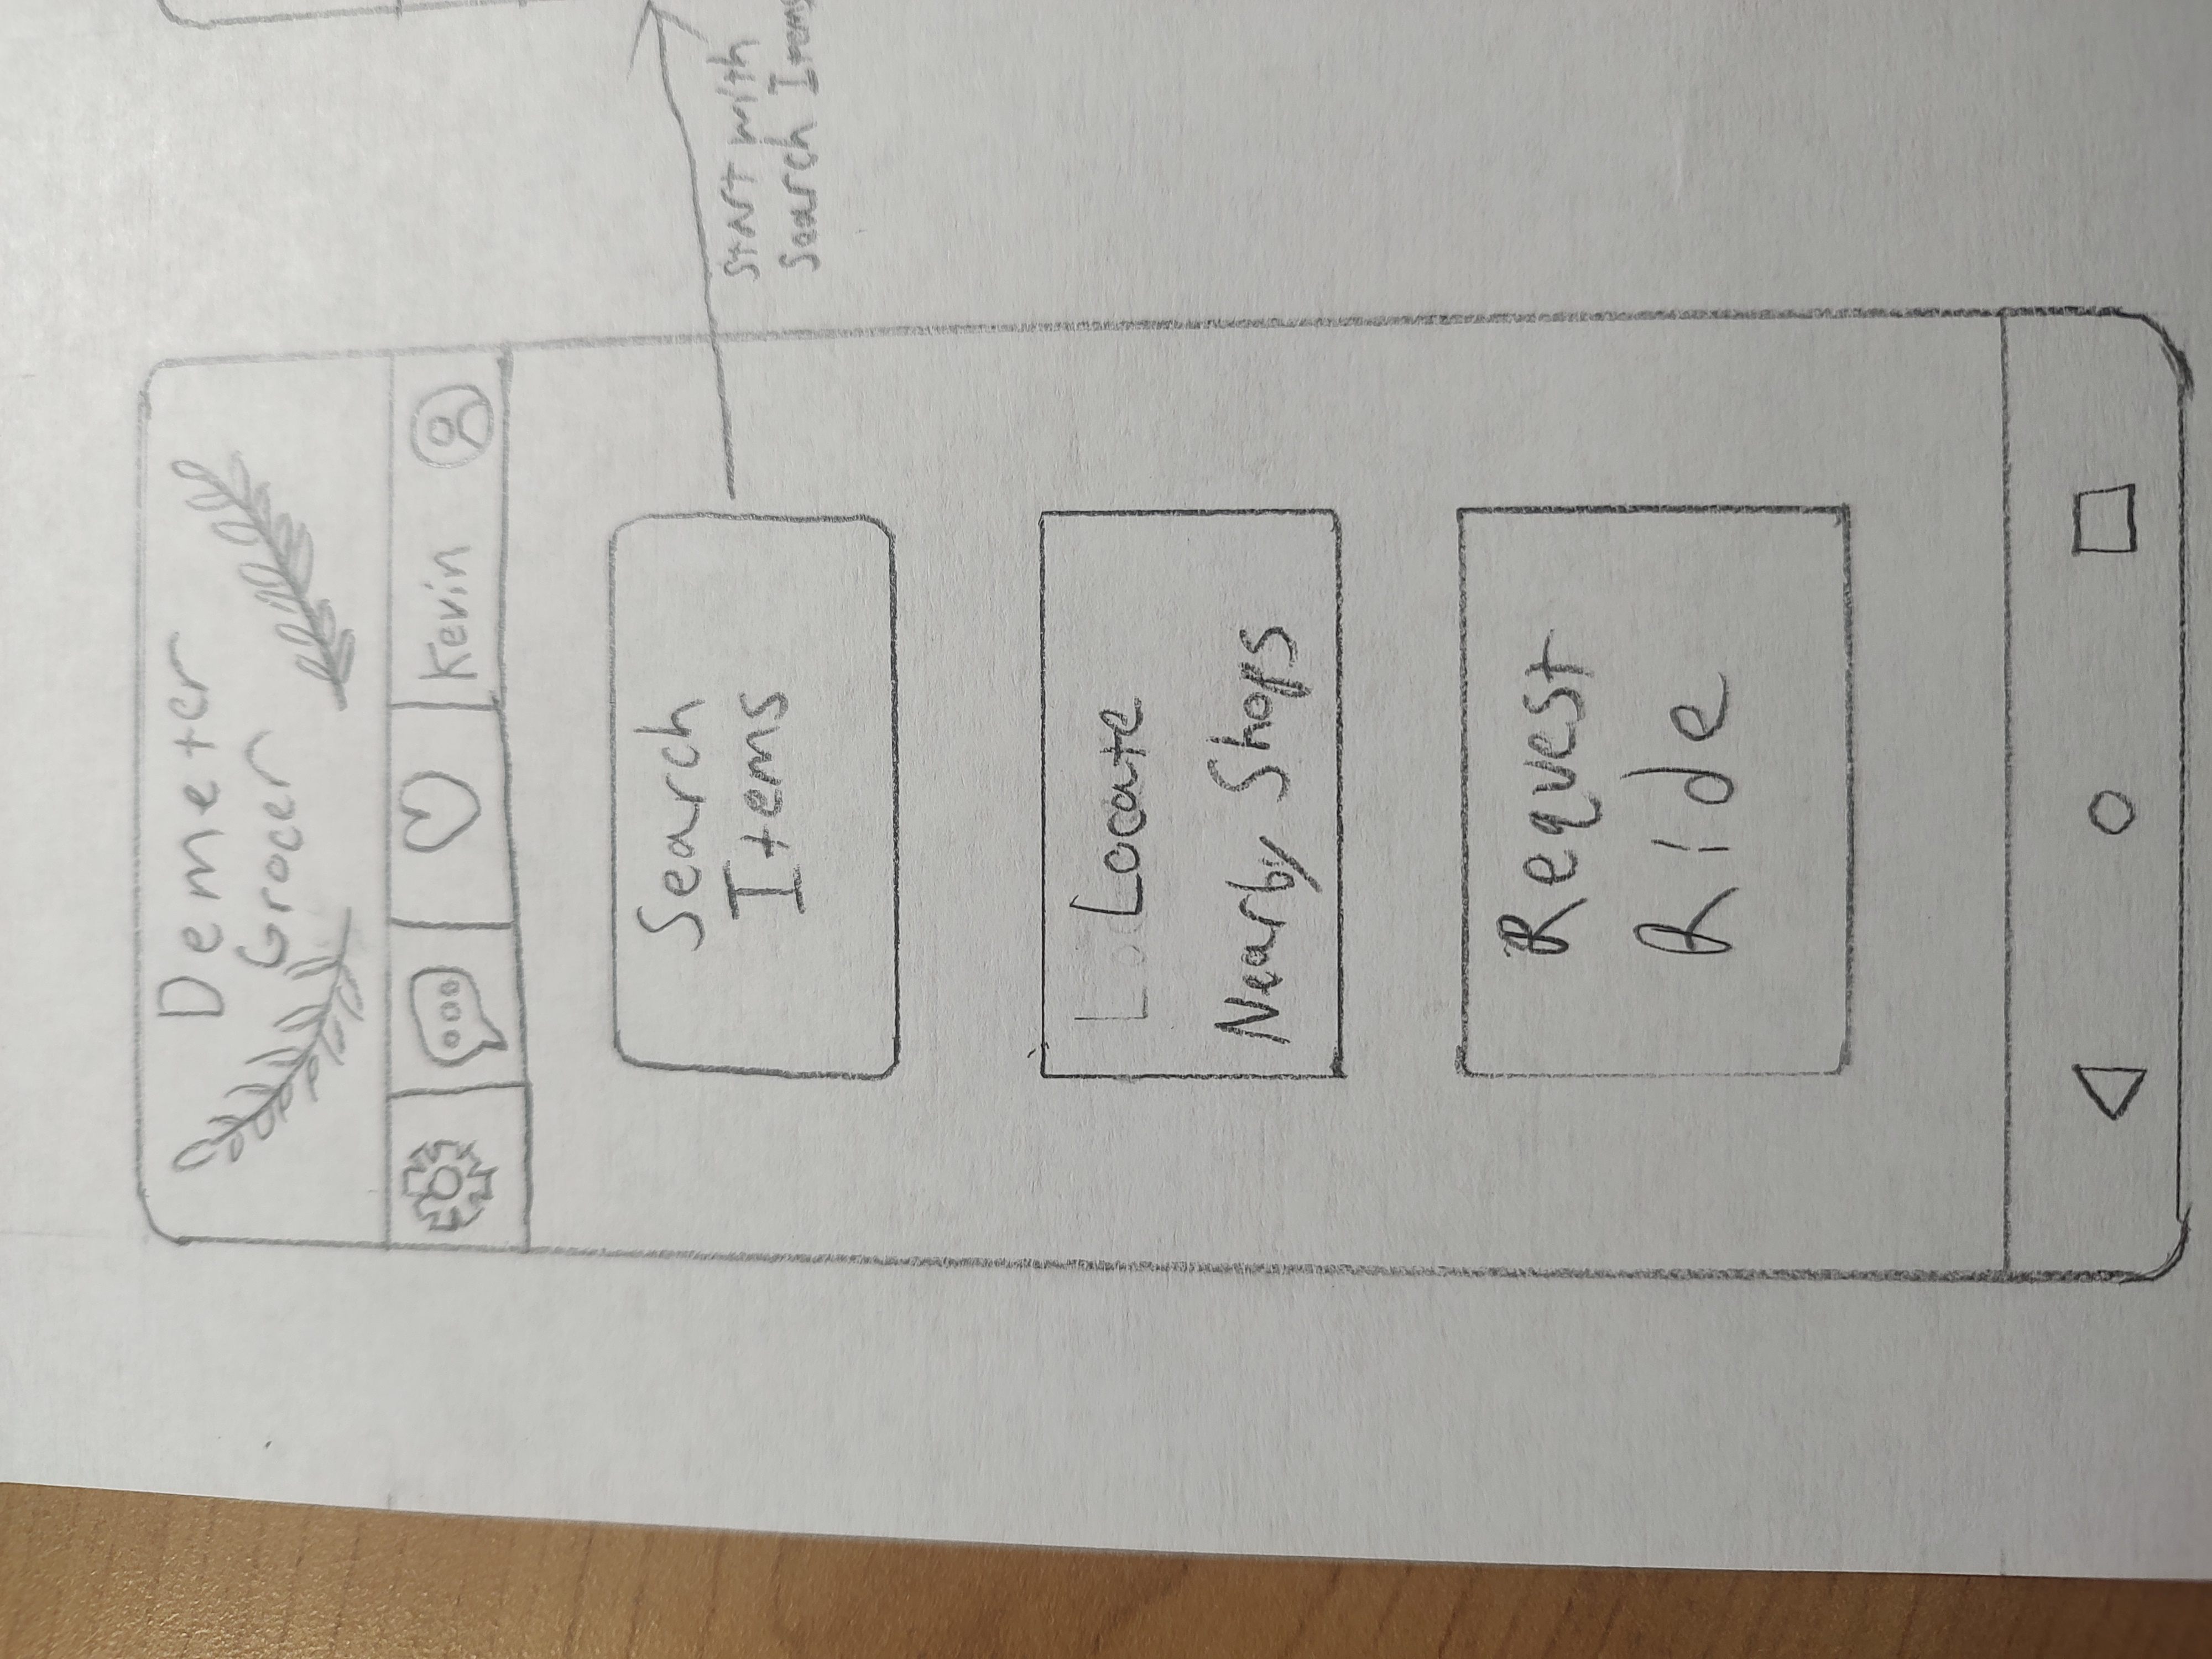 Demeter
Grocer
Kevin
Search
Items
Start with
Search Items
Locate
Nearby Shops
Request
Ride